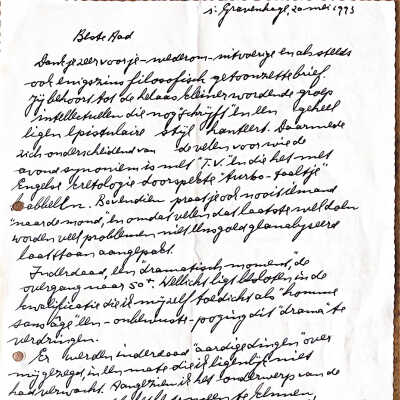 's-Gravenhage, 20 mei 1993
Beste Aad
Dank je zeer voor je - wederom - uitvoerige en als steeds
ook enigszins filosofisch getoonzette brief.
Jij behoort tot de helaas kleiner wordende groep
intellectuelen die nog "schrijft" en een geheel
eigen epistulaire stijl hanteert. Daarmede
zich onderscheidend van de velen voor wie de
avond synoniem is met "T.V." en die het met
Engelse doorspekte "turbo-taaltje"
babbelen. Bovendien praat je ook nooit iemand
"naar de mond", en omdat velen dat laatste wel doen
worden veel problemen niet eens goed geanalyseerd
laat staan aangepakt.
Inderdaad, een "dramatisch moment", de
overgang naar 50+. Wellicht ligt besloten in de
kwalificatie die ik mijzelf toedicht als "homme
sans âge" een - onbewuste - poging dit "drama" te
verdringen.
Er werden inderdaad "aardige dingen" over
mij gezegd, in een mate die ik eigenlijk niet
had verwacht. Aangezien ik het onderwerp van de
te kennen,